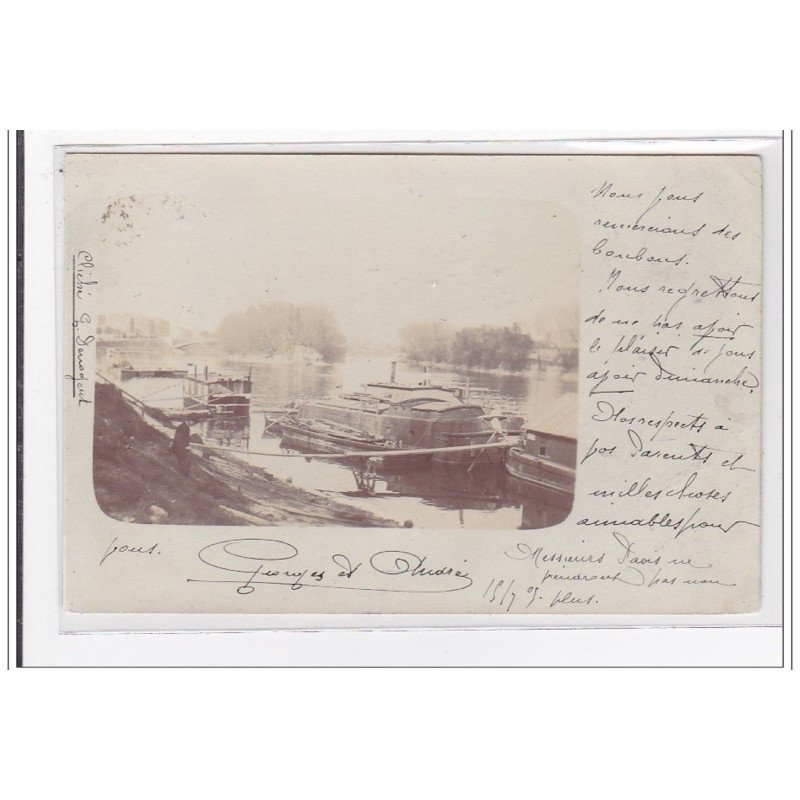 Cliché G.
Nous vous
remercions des
bonbons.
Nous regrettons
de ne pas avoir
le plaisir de vous
avoir Dimanche.
Nos respects à
vos Parents et
milles choses
aimables pour
vous.
Georges et André
Messieurs Davis ne
viendront pas non
plus.
15/7 05.